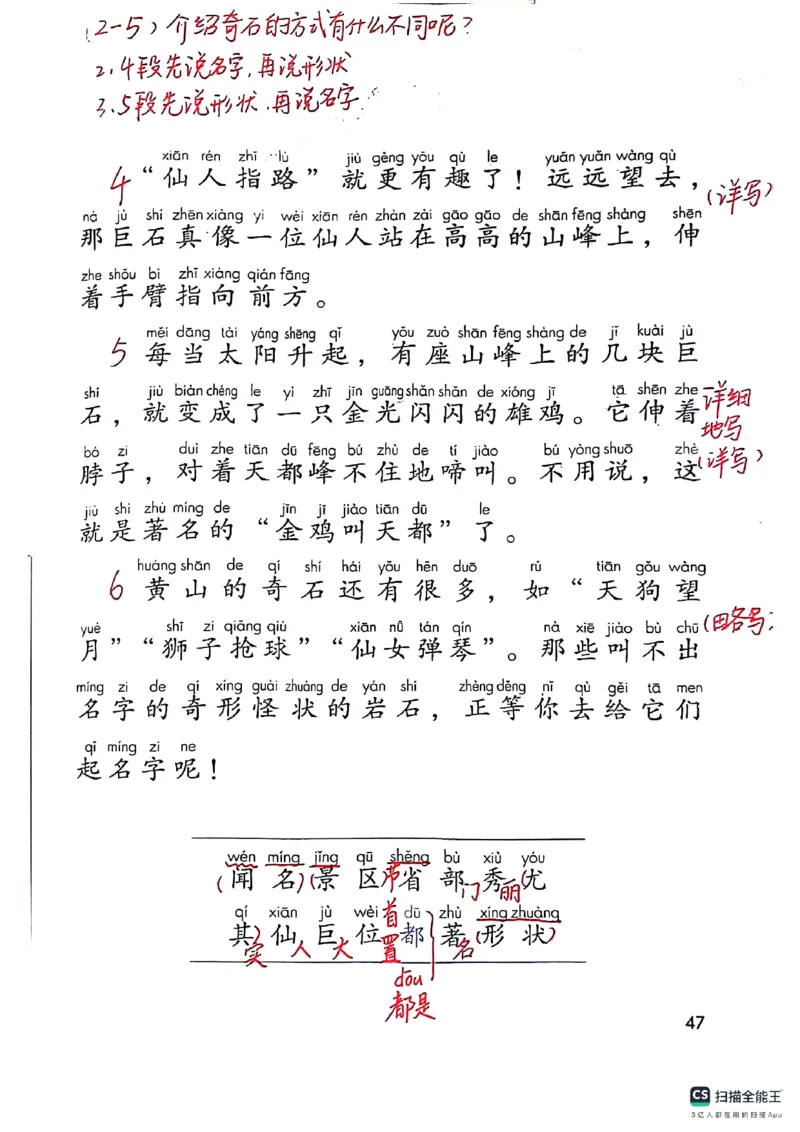 (2-5) 介绍奇石的方式有什么不同呢？
2.4段先说名字,再说形状
3.5段先说形状,再说名字
xiān rén zhǐ lù jiù gèng yǒu qù le yuǎn yuǎn wàng qù
4 “仙人指路”就更有趣了！远远望去，(详写)
nà jù shí zhēn xiàng yí wèi xiān rén zhàn zài gāo gāo de shān fēng shàng shēn
那巨石真像一位仙人站在高高的山峰上，伸
zhe shǒu bì zhǐ xiàng qián fāng
着手臂指向前方。
měi dāng tài yáng shēng qǐ yǒu zuò shān fēng shàng de jǐ kuài jù
5 每当太阳升起，有座山峰上的几块巨
shí jiù biàn chéng le yì zhī jīn guāng shǎn shǎn de xióng jī tā shēn zhe
石，就变成了一只金光闪闪的雄鸡。它伸着 详细地写
bó zi duì zhe tiān dū fēng bú zhù de tí jiào bú yòng shuō zhè
脖子，对着天都峰不住地啼叫。不用说，这 (详写)
jiù shì zhù míng de jīn jī jiào tiān dū le
就是著名的“金鸡叫天都”了。
huáng shān de qí shí hái yǒu hěn duō rú tiān gǒu wàng
6 黄山的奇石还有很多，如“天狗望
yuè shī zi qiǎng qiú xiān nǚ tán qín nà xiē jiào bù chū
月”“狮子抢球”“仙女弹琴”。那些叫不出 (略写)
míng zi de qí xíng guài zhuàng de yán shí zhèng děng nǐ qù gěi tā men
名字的奇形怪状的岩石，正等你去给它们
qǐ míng zi ne
起名字呢！
wén míng jǐng qū shěng bù xiù yóu
(闻名)(景区 市省 部门 秀丽 (优
qí xiān jù wèi dū zhù xíng zhuàng
其)实 仙人 巨大 位置 首都 著名 (形状)
dōu
都是
47
CS 扫描全能王
3亿人都在用的扫描App